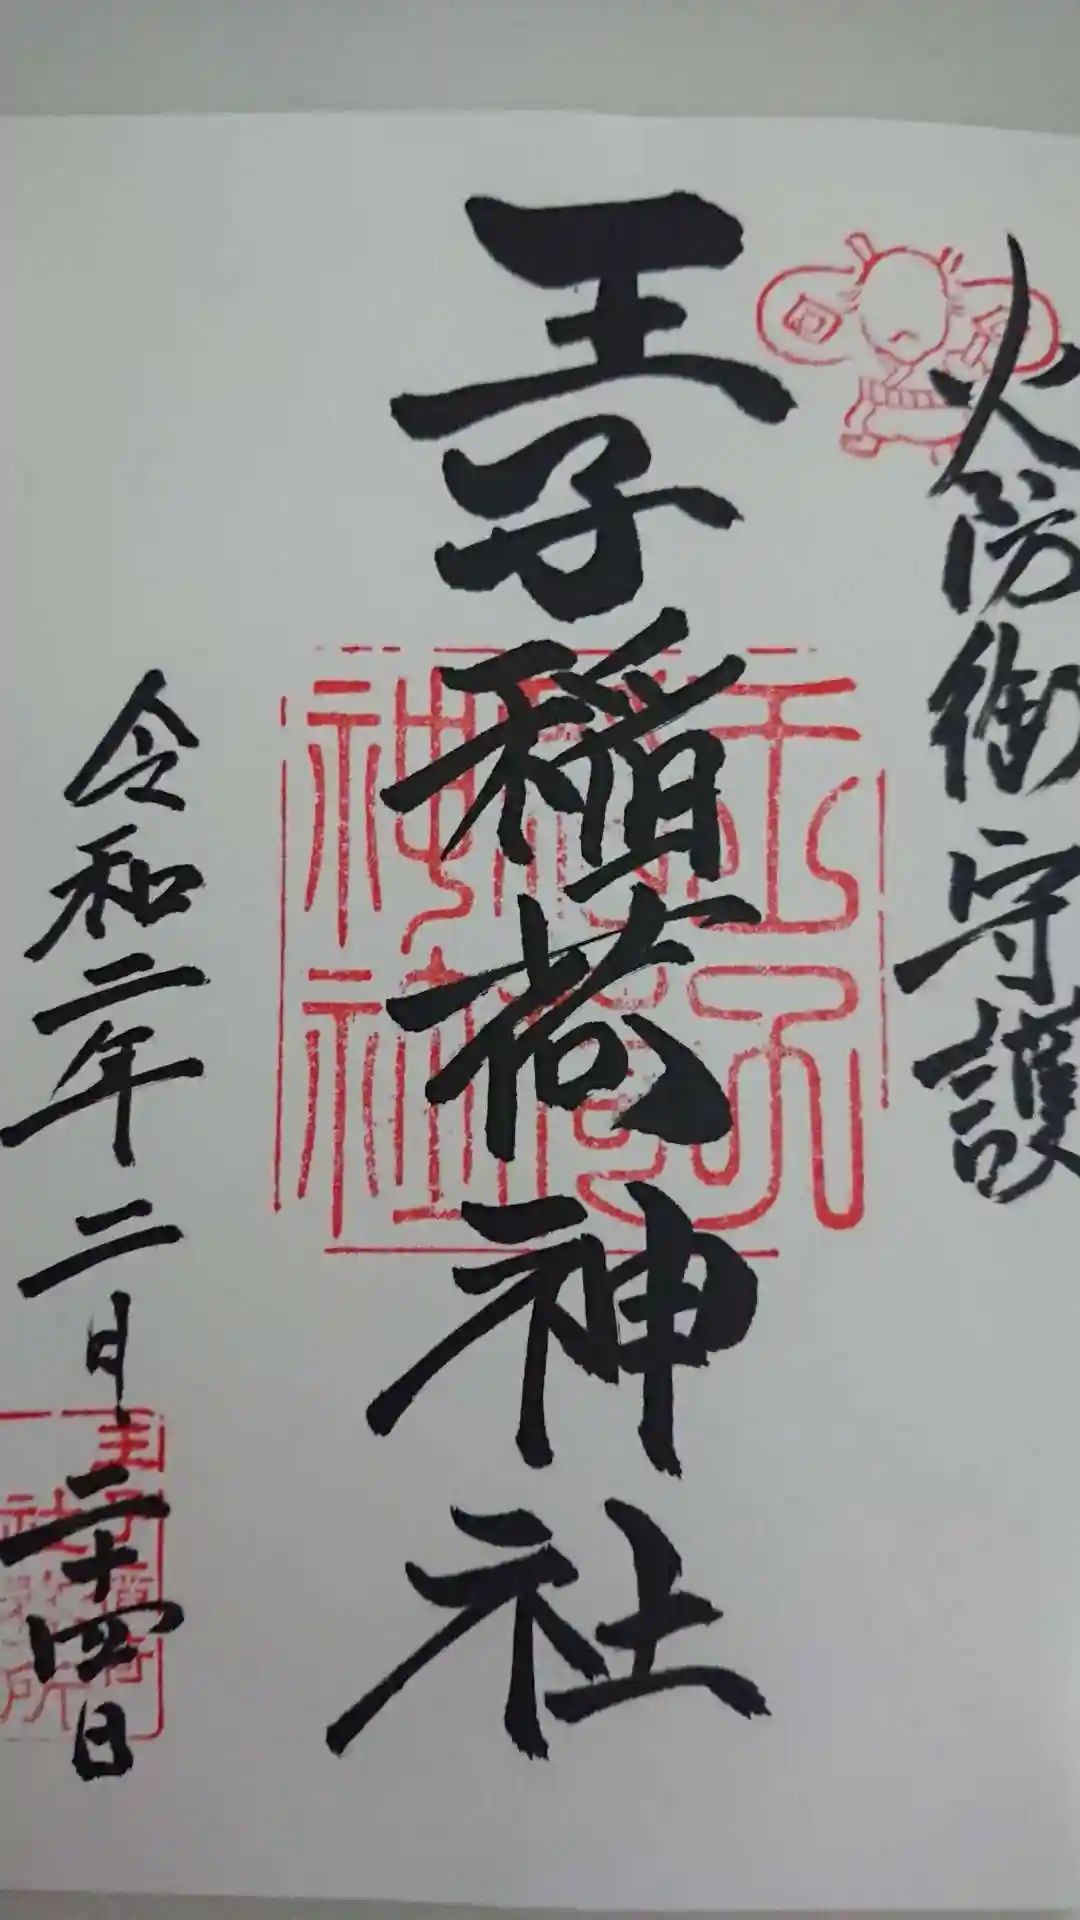 火防御守護
王子稲荷神社
王子
稲荷
神社
令和二年二月二十四日
王子稲荷
社務所